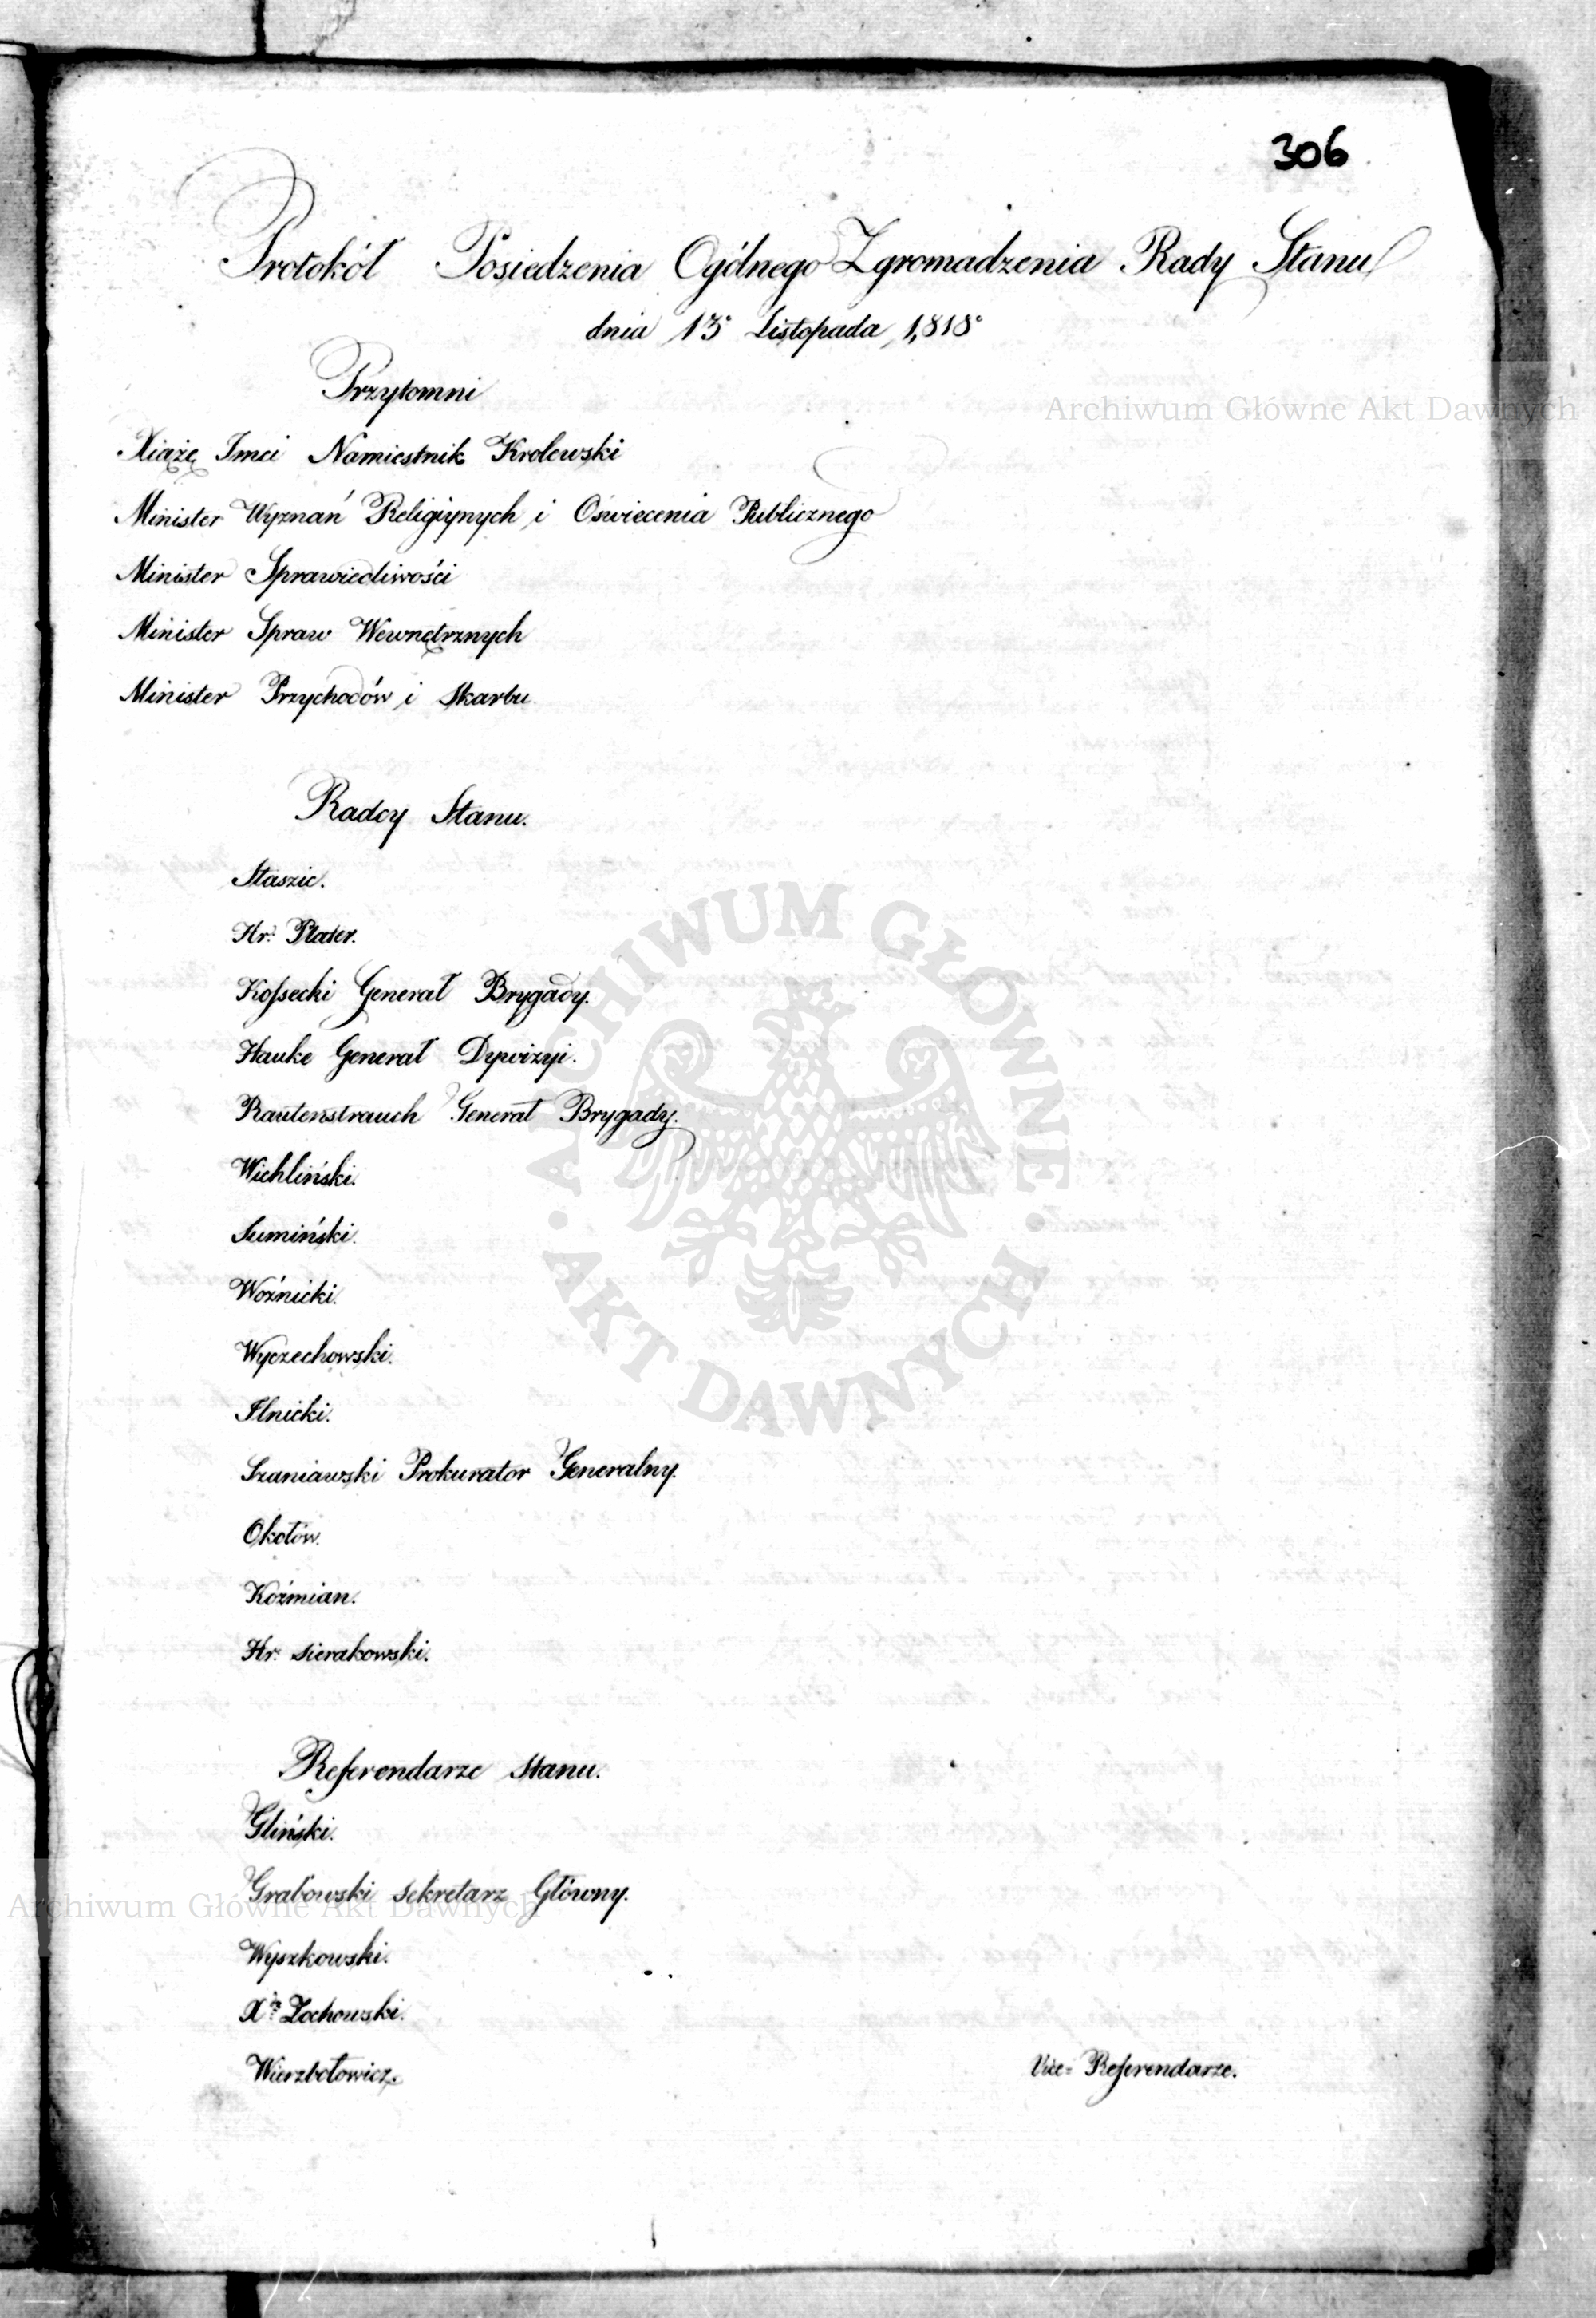 306
Protokół Posiedzenia Ogólnego Zgromadzenia Rady Stanu
dnia 13° Listopada 1,818°
Przytomni
Xiąże Jmci Namiestnik Krolewski
Minister Wyznań Religiynych i Oswiecenia Publicznego
Minister Sprawiedliwości
Minister Spraw Wewnętrznych
Minister Przychodów i Skarbu
Radcy Stanu.
Staszic.
Hr: Plater.
Koſsecki Generał Brygady.
Hauke Generał Dywizyi.
Rautenstrauch Generał Brygady.
Wichliński.
Sumiński.
Woźnicki.
Wyczechowski.
Ilnicki.
Szaniawski Prokurator Generalny.
Okołów.
Koźmian.
Hr: Sierakowski.
Referendarze Stanu.
Gliński.
Grabowski Sekretarz Główny.
Wyszkowski.
Xdz Zochowski.
Wierzbołowicz.
Vice= Referendarze.
Archiwum Główne Akt Dawnych
ARCHIWUM GŁÓWNE • AKT DAWNYCH •
Archiwum Główne Akt Dawnych